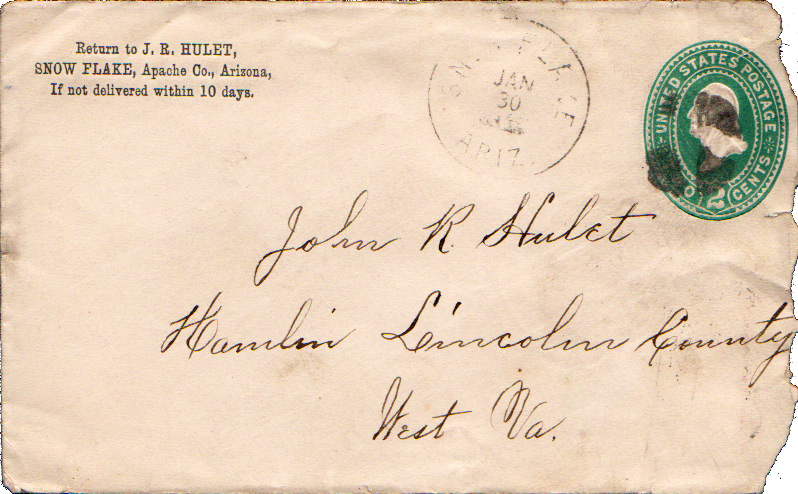 Return to J. R. HULET,
SNOW FLAKE, Apache Co., Arizona,
If not delivered within 10 days.
JAN
30
ARIZ.
UNITED STATES POSTAGE
2 CENTS
John R. Hulet
Hamlin Lincoln County
West Va.